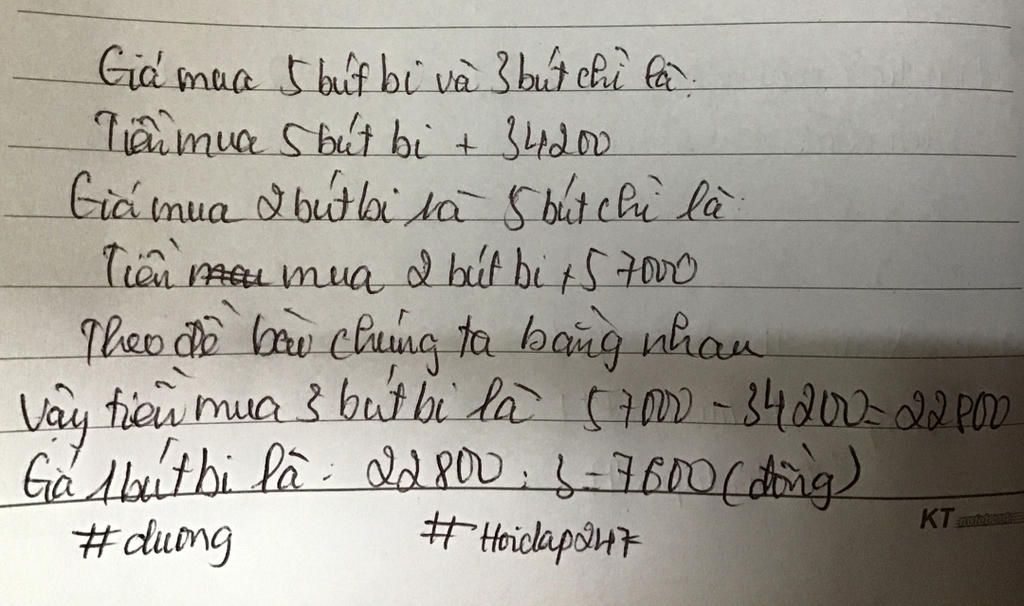 Giá mua 5 bút bi và 3 bút chì là:
Tiền mua 5 bút bi + 34200
Giá mua 2 bút bi và 5 bút chì là:
Tiền mua 2 bút bi + 57000
Theo đề bài chúng ta bằng nhau
Vậy tiền mua 3 bút bi là 57000 - 34200 = 22800
Giá 1 bút bi là : 22800 : 3 = 7600 (đồng)
KT
#duong #Hoidap247